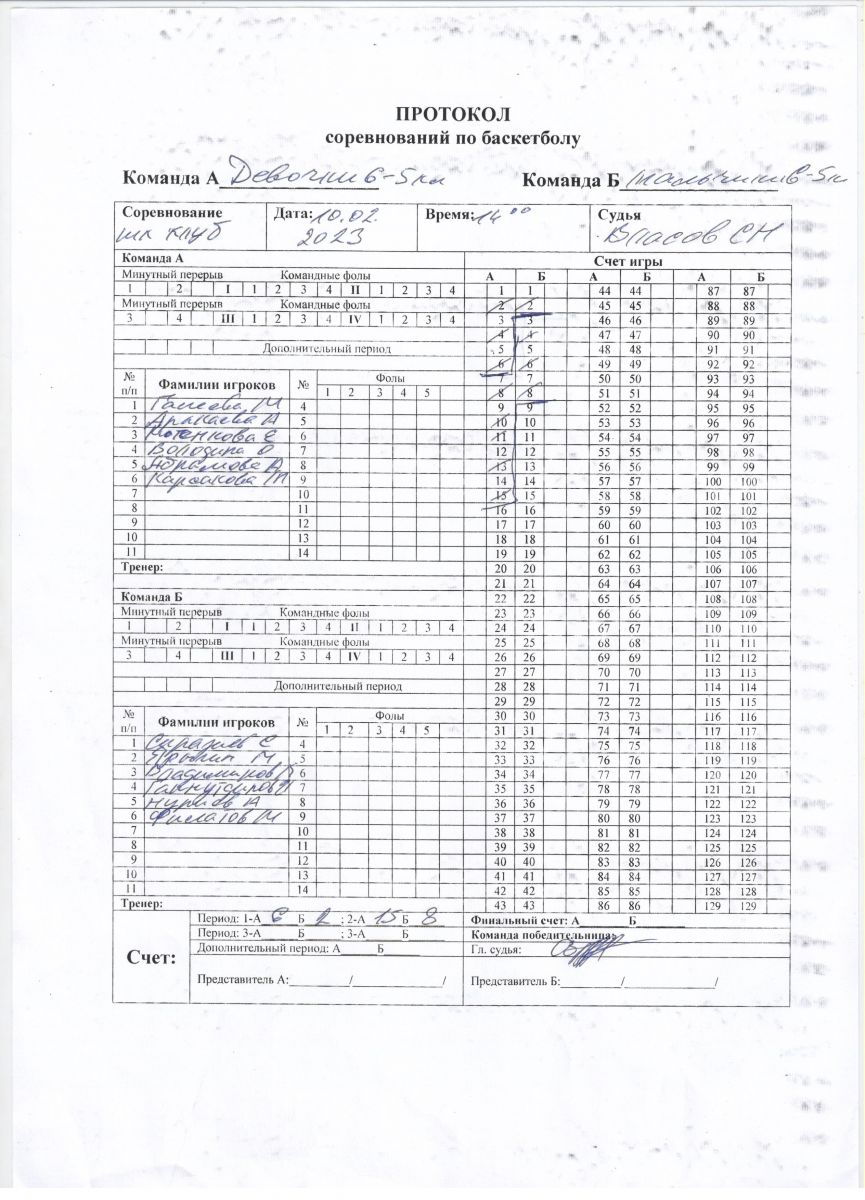 ПРОТОКОЛ
соревнований по баскетболу
Команда А Девочки 6-5кл Команда Б Мальчики 6-5кл
Соревнование Дата: 10.02. Время: 14 00 Судья
шк клуб 2023 Власов СН
Команда А Счет игры
Минутный перерыв Командные фолы А Б А Б А Б
1 2 I 1 2 3 4 II 1 2 3 4 1 1 44 44 87 87
Минутный перерыв Командные фолы 2 2 45 45 88 88
3 4 III 1 2 3 4 IV 1 2 3 4 3 3 46 46 89 89
4 4 47 47 90 90
Дополнительный период 5 5 48 48 91 91
6 6 49 49 92 92
№ п/п Фамилии игроков № Фолы 7 7 50 50 93 93
1 2 3 4 5 8 8 51 51 94 94
1 М 4 9 9 52 52 95 95
2 А 5 10 10 53 53 96 96
3 Е 6 11 11 54 54 97 97
4 Володина О 7 12 12 55 55 98 98
5 Абрамова А 8 13 13 56 56 99 99
6 Карсакова М 9 14 14 57 57 100 100
7 10 15 15 58 58 101 101
8 11 16 16 59 59 102 102
9 12 17 17 60 60 103 103
10 13 18 18 61 61 104 104
11 14 19 19 62 62 105 105
Тренер: 20 20 63 63 106 106
21 21 64 64 107 107
Команда Б 22 22 65 65 108 108
Минутный перерыв Командные фолы 23 23 66 66 109 109
1 2 I 1 2 3 4 II 1 2 3 4 24 24 67 67 110 110
Минутный перерыв Командные фолы 25 25 68 68 111 111
3 4 III 1 2 3 4 IV 1 2 3 4 26 26 69 69 112 112
27 27 70 70 113 113
Дополнительный период 28 28 71 71 114 114
29 29 72 72 115 115
№ п/п Фамилии игроков № Фолы 30 30 73 73 116 116
1 2 3 4 5 31 31 74 74 117 117
1 Сиразиев С 4 32 32 75 75 118 118
2 М 5 33 33 76 76 119 119
3 Владимиров 6 34 34 77 77 120 120
4 7 35 35 78 78 121 121
5 Нуриев А 8 36 36 79 79 122 122
6 Филатов М 9 37 37 80 80 123 123
7 10 38 38 81 81 124 124
8 11 39 39 82 82 125 125
9 12 40 40 83 83 126 126
10 13 41 41 84 84 127 127
11 14 42 42 85 85 128 128
Тренер: 43 43 86 86 129 129
Счет:
Период: 1-А 6 Б 2 ; 2-А 15 Б 8 Финальный счет: А Б
Период: 3-А Б ; 3-А Б Команда победительница:
Дополнительный период: А Б Гл. судья:
Представитель А: / / Представитель Б: / /